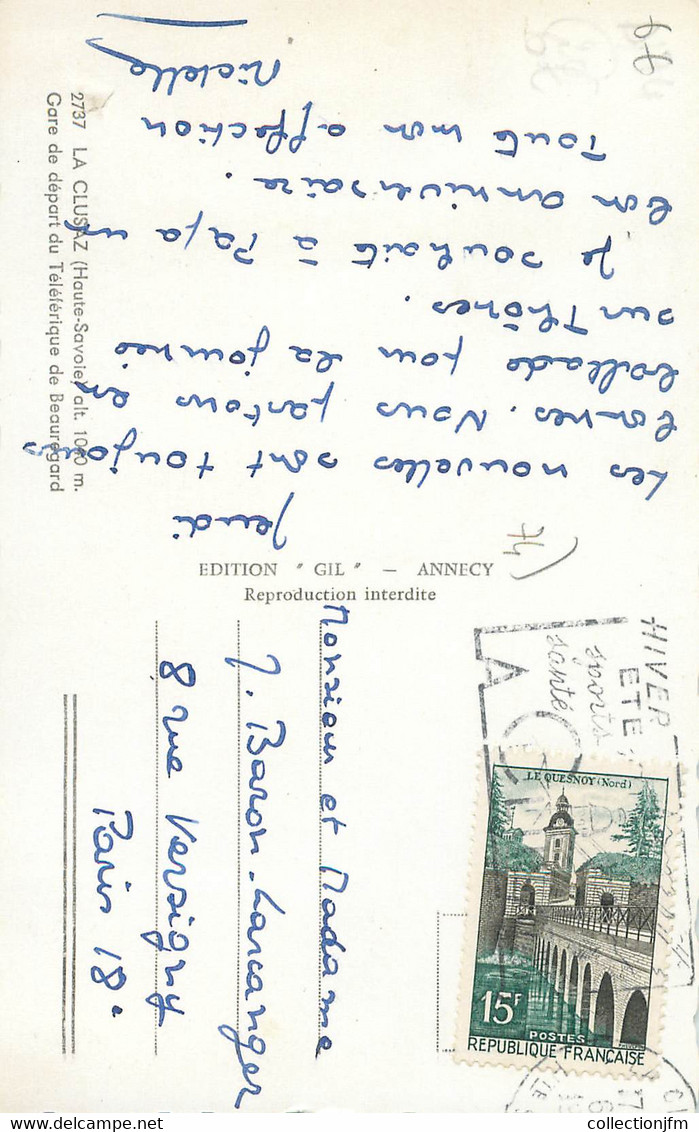 Jeudi
Les nouvelles sont toujours
bonnes. Nous partons en
ballade pour la journée
sur Thônes.
Je souhaite à Papa un
bon anniversaire.
Toute mon affection
2737 LA CLUSAZ (Haute-Savoie) alt. 1040 m.
Gare de départ du Téléférique de Beauregard
EDITION " GIL " — ANNECY
Reproduction interdite
74
Monsieur et Madame
J. Baron-Lancanger
8 rue Versigny
Paris 18e
HIVER
ETE
sports
santé
LA
LE QUESNOY (Nord)
15F
POSTES
REPUBLIQUE FRANÇAISE
collectionjfm